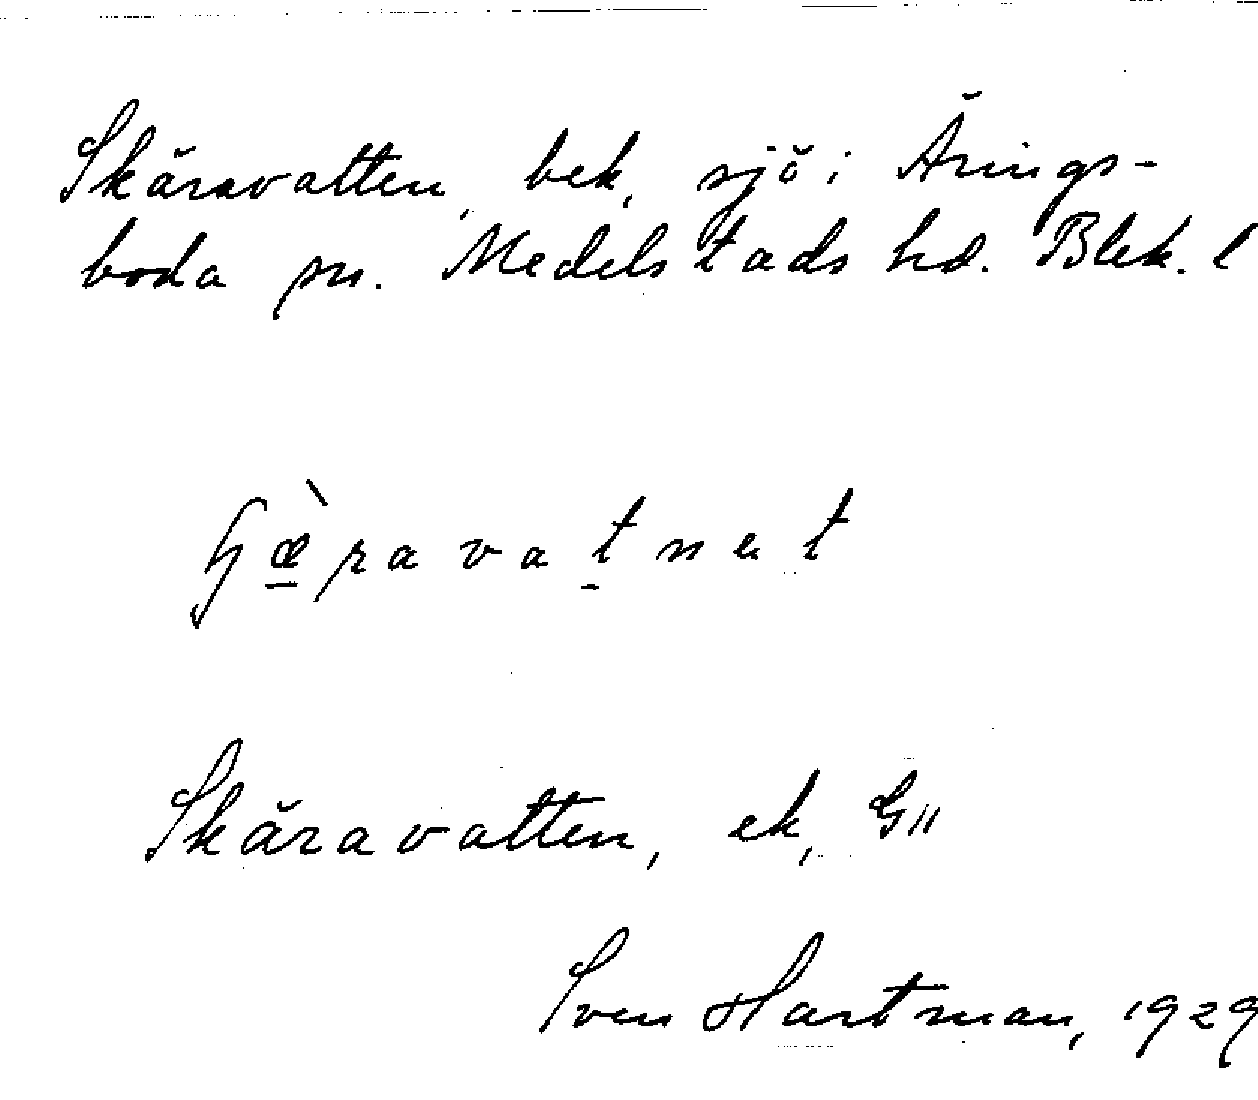 Skäravatten, bek, sjö i Årings-
boda sn. Medelstads hd. Blek. l
Skäravatten, ek, G11
Sven Hartman, 1929